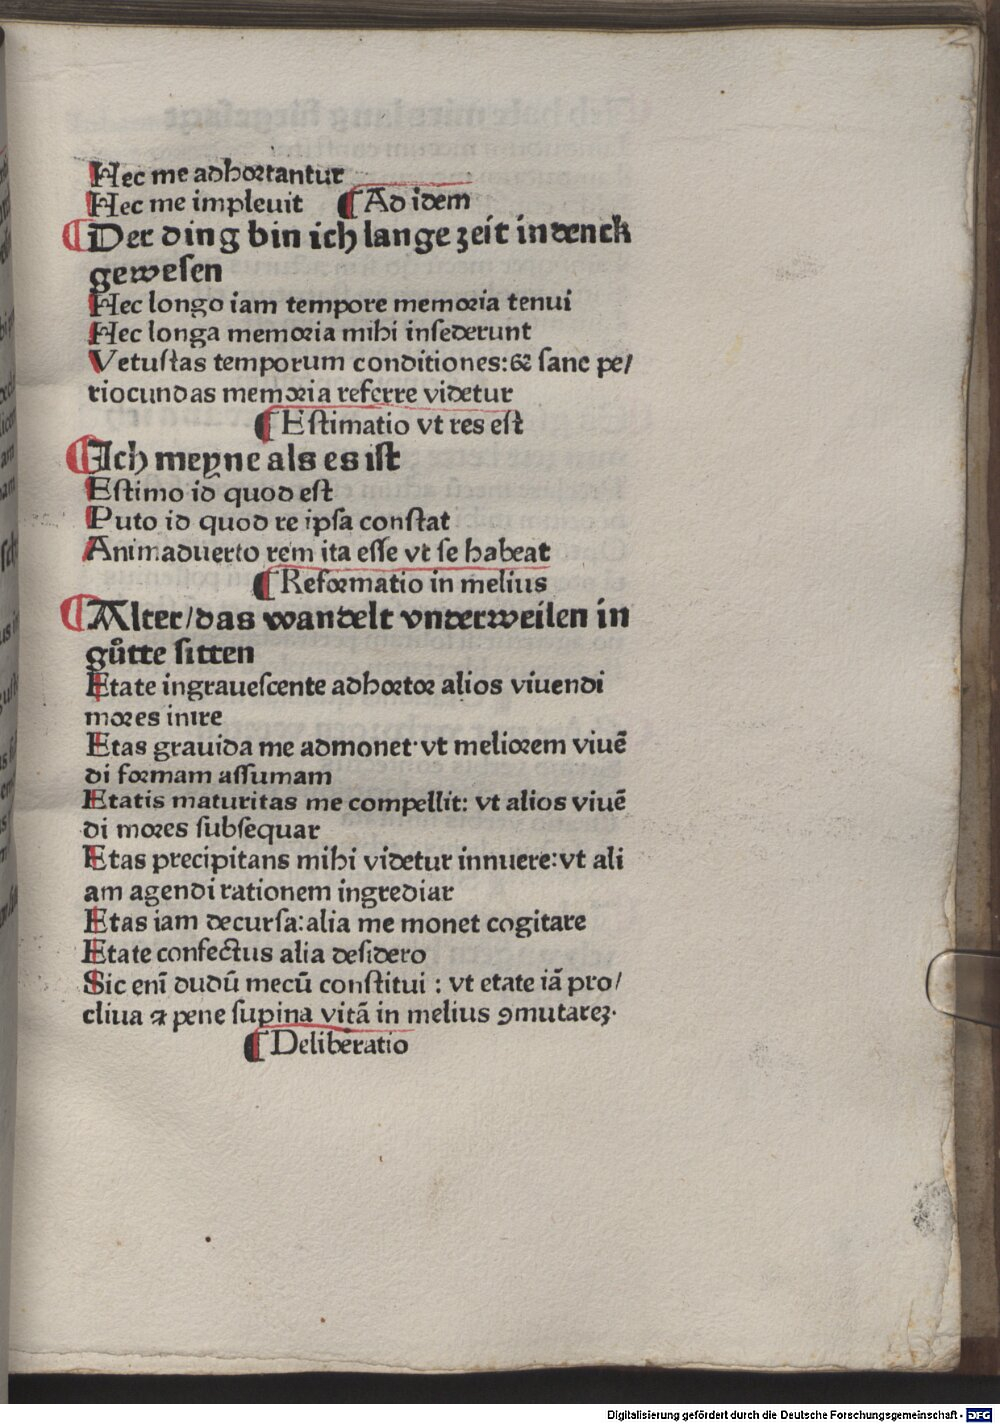 Hec me adhortantur
Hec me impleuit ¶ Ad idem
¶ Der ding bin ich lange zeit in denck
gewesen
Hec longo iam tempore memoria tenui
Hec longa memoria mihi insederunt
Vetustas temporum conditiones: & sane pe/
riocundas memoria referre videtur
¶ Estimatio vt res est
¶ Ich meyne als es ist
Estimo id quod est
Puto id quod re ipsa constat
Animaduerto rem ita esse vt se habeat
¶ Reformatio in melius
¶ Alter/das wandelt vnterweilen in
gůtte sitten
Etate ingrauescente adhortor alios viuendi
mores inire
Etas grauida me admonet· vt meliorem viuē
di formam assumam
Etatis maturitas me compellit: vt alios viuē
di mores subsequar
Etas precipitans mihi videtur innuere: vt ali
am agendi rationem ingrediar
Etas iam decursa: alia me monet cogitare
Etate confectus alia desidero
Sic enī dudū mecū constitui : vt etate iā pro/
cliua ⁊ pene supina vitā in melius ꝯmutareꝫ·
¶ Deliberatio
Digitalisierung gefördert durch die Deutsche Forschungsgemeinschaft - DFG